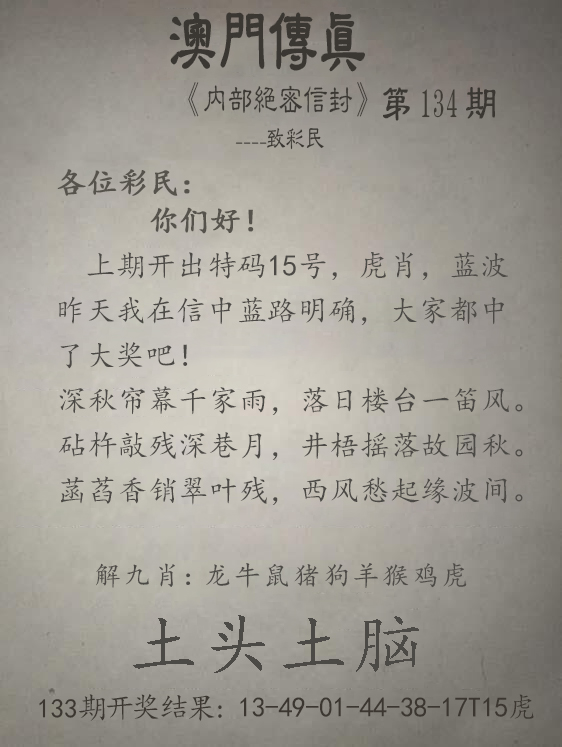 澳門傳真
《内部絕密信封》第134期
----致彩民
各位彩民：
你们好！
上期开出特码15号，虎肖，蓝波
昨天我在信中蓝路明确，大家都中
了大奖吧！
深秋帘幕千家雨，落日楼台一笛风。
砧杵敲残深巷月，井梧摇落故园秋。
菡萏香销翠叶残，西风愁起缘波间。
解九肖：龙牛鼠猪狗羊猴鸡虎
土头土脑
133期开奖结果：13-49-01-44-38-17T15虎